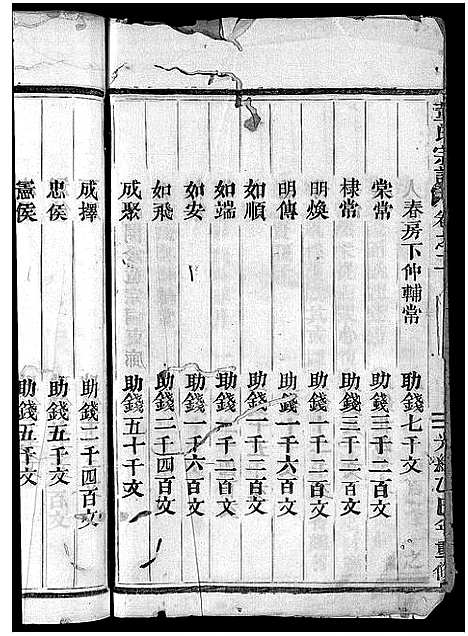 董氏宗譜 卷之二 光緒乙巳年重修
春房下仲輔常 助錢七千文
棠常 助錢三千二百文
棣常 助錢三千二百文
明煥 助錢一千二百文
明傳 助錢一千六百文
如順 助錢一千二百文
如端 助錢一千二百文
如安 助錢一千六百文
如飛 助錢二千四百文
成聚 助錢五十千文
成擇 助錢二千四百文
忠侯 助錢五千文
憲侯 助錢五千文